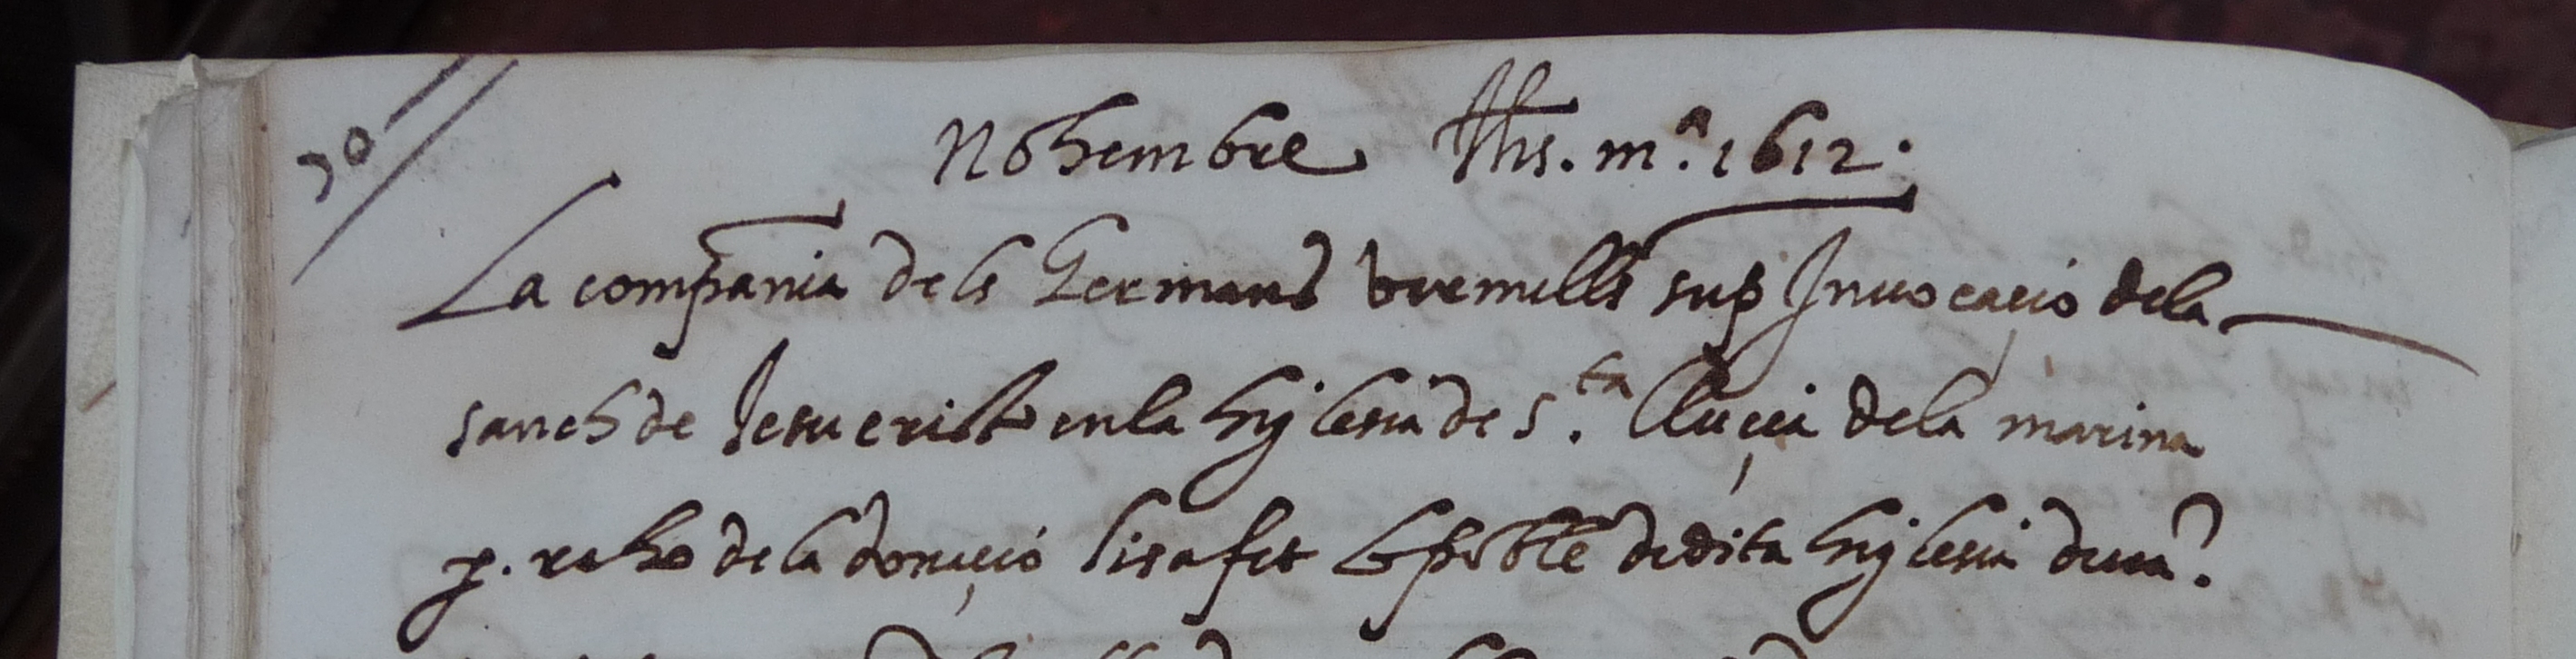 30
Nohembre Jħs. m.ª 1612.
La compania dels Germans vermills sup Jnuocacio dela
sanch de Jesucrist en la hyglesia de s.ta lluçia dela marina
p. raho de la donaçió lisafet lo poble de dita hyglesia deua?